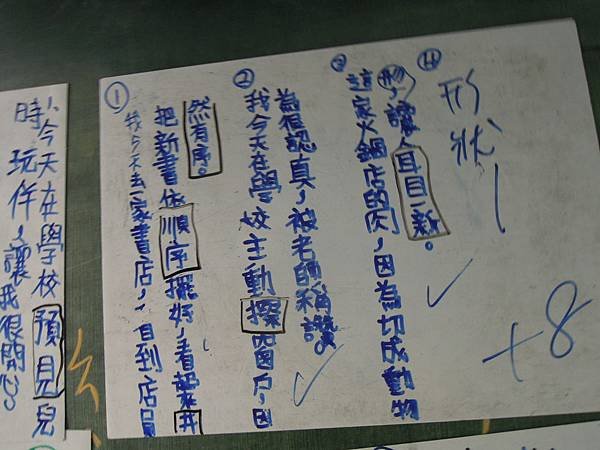 1、今天在學校預見兒
時玩伴，讓我很開心。
①
我今天去家書店，看到店員
把新書依順序擺好，看起來井
然有序。
②
我今天在學校主動擦窗戶，因
為很認真，被老師稱讚。
③
這家火鍋店的肉，因為切成動物
形，讓人耳目一新。
④
形狀
+8